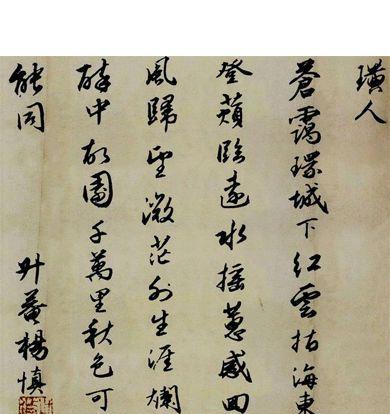 璜人
蒼靄環城下紅雲指海東
登蘋臨遠水搖蕙感回
風歸望微茫外生涯爛
醉中故園千萬里秋色可
能同
升菴楊慎